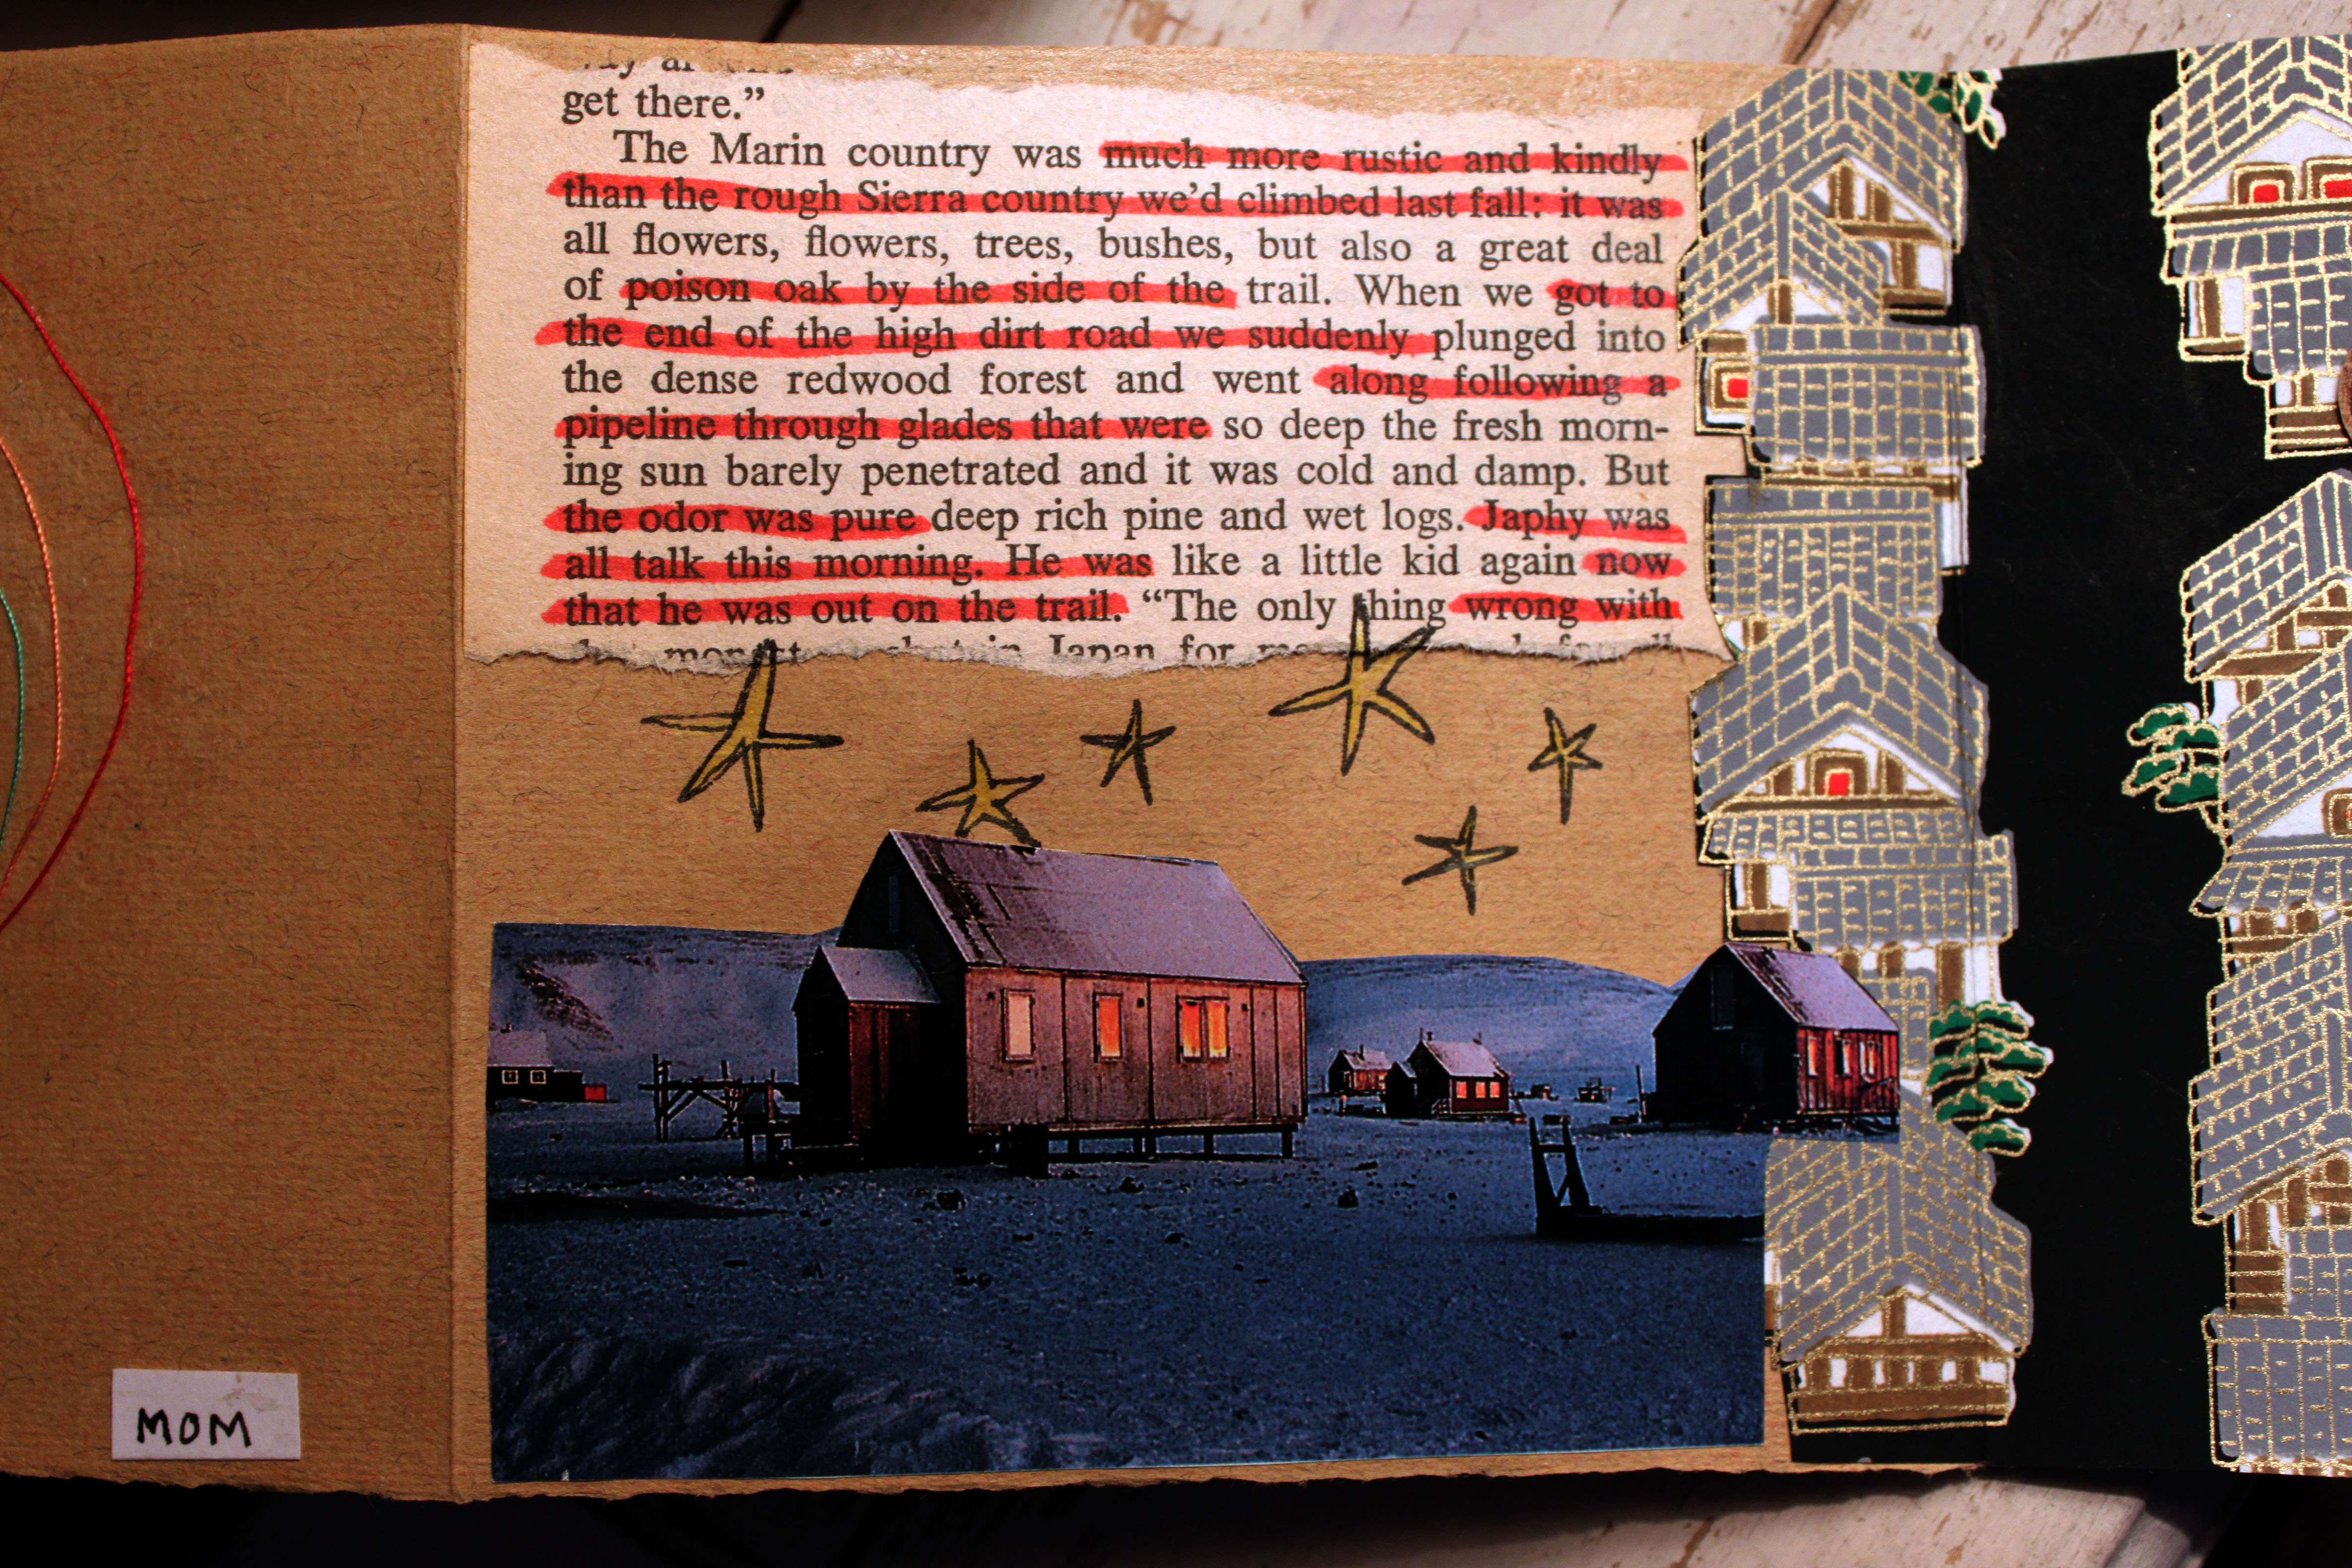 get there.”
The Marin country was much more rustic and kindly
than the rough Sierra country we’d climbed last fall: it was
all flowers, flowers, trees, bushes, but also a great deal
of poison oak by the side of the trail. When we got to
the end of the high dirt road we suddenly plunged into
the dense redwood forest and went along following a
pipeline through glades that were so deep the fresh morn-
ing sun barely penetrated and it was cold and damp. But
the odor was pure deep rich pine and wet logs. Japhy was
all talk this morning. He was like a little kid again now
that he was out on the trail. “The only thing wrong with
Japan for
MOM